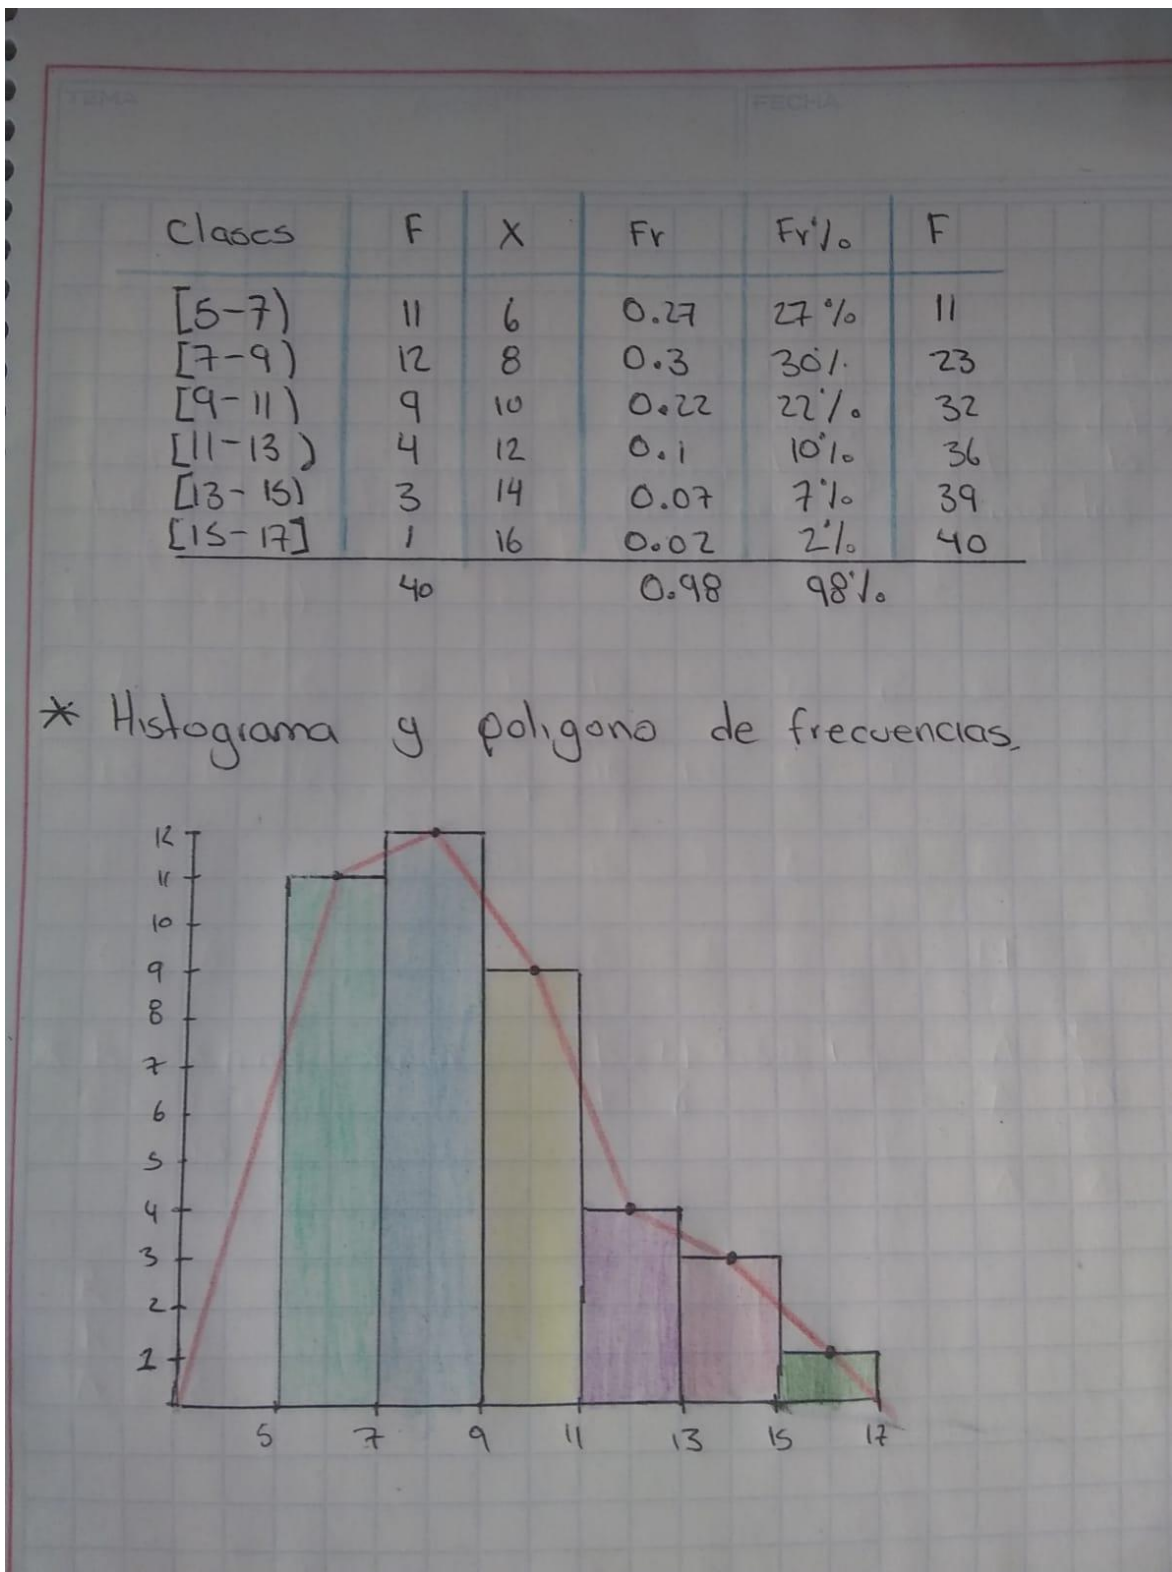 TEMA FECHA
Clases F X Fr Fr% F
[5-7) 11 6 0.27 27% 11
[7-9) 12 8 0.3 30% 23
[9-11) 9 10 0.22 22% 32
[11-13) 4 12 0.1 10% 36
[13-15) 3 14 0.07 7% 39
[15-17] 1 16 0.02 2% 40
40 0.98 98%
* Histograma y poligono de frecuencias.
12
11
10
9
8
7
6
5
4
3
2
1
5 7 9 11 13 15 17